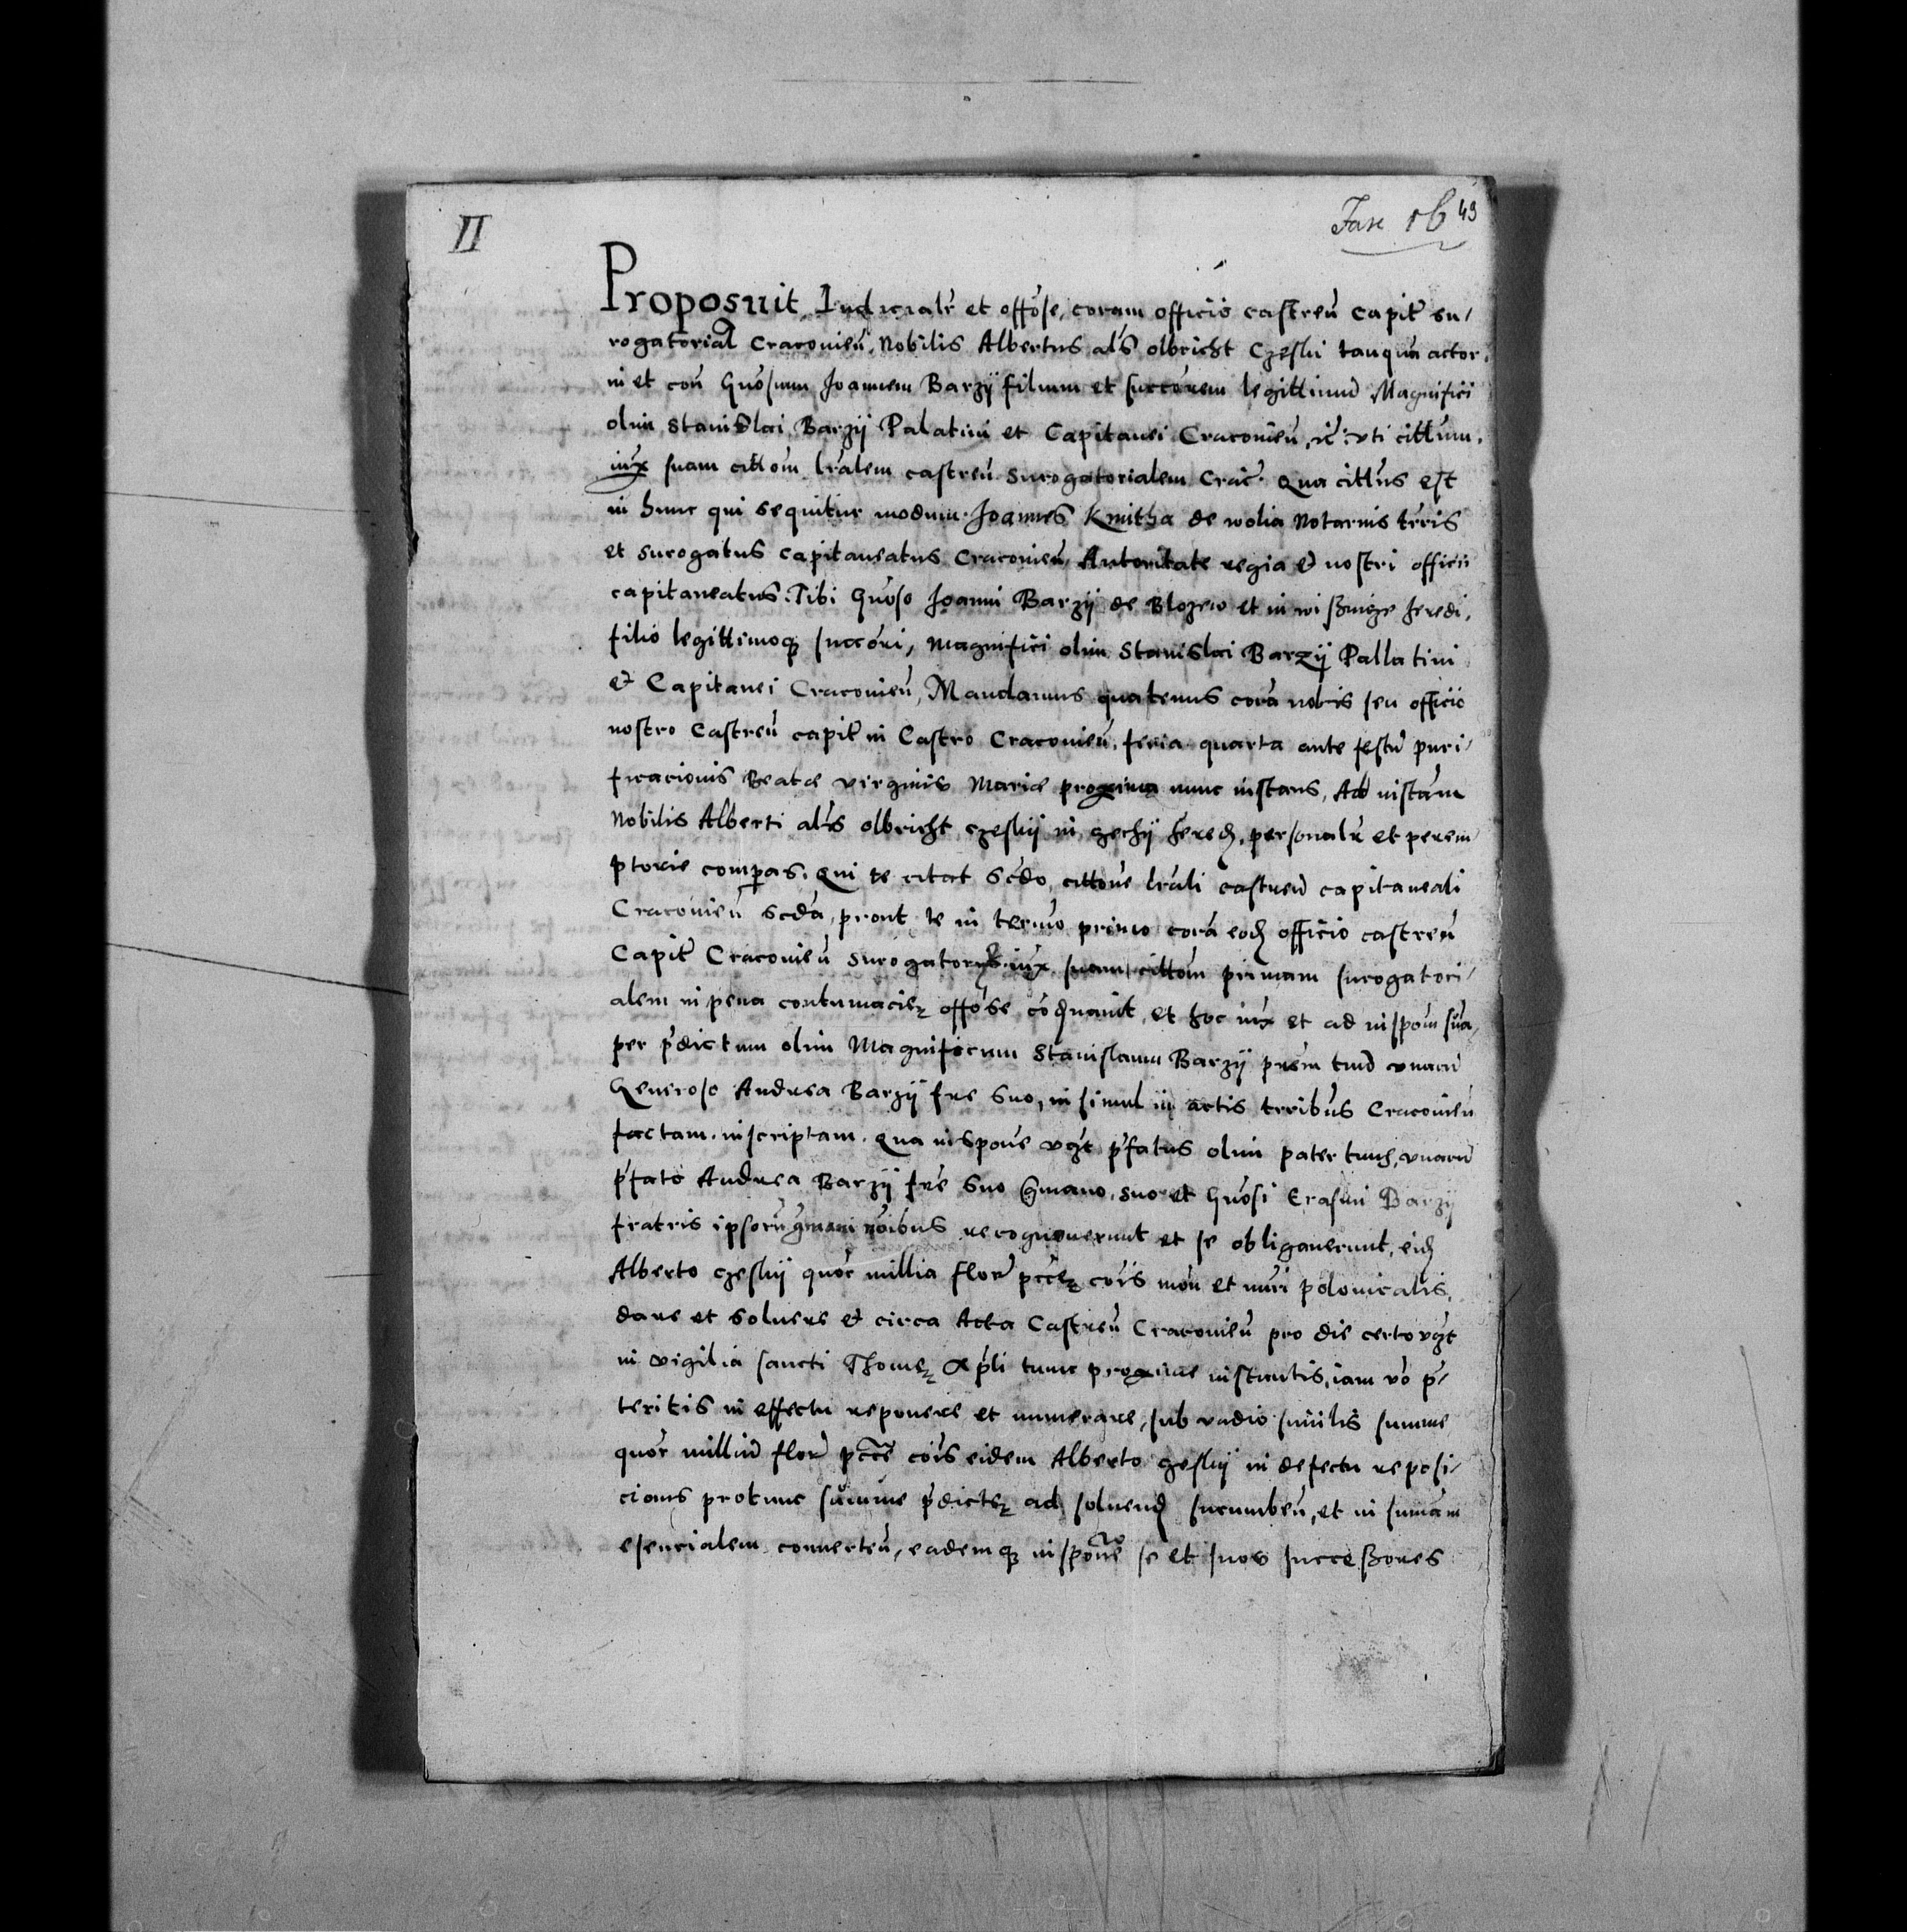 II
Fasc 16 49
Proposuit Iudicialr̃ et offõse, coram officio castreñ Capit̃ su/
rogatorial Cracovieñ, Nobilis Albertus al̃s olbricht Czeski tanquã actor,
in et coñ Gñosum Joannem Barzÿ filium et succõrem legittimũ Magnifici
olim Stanislai Barzÿ Palatini et Capitanei Cracovieñ, ic̃ : vti citt̃um,
iux̃ suam citt̃om lr̃alem castreñ surogatorialem Crac̃. Qua citt̃us est
in hunc qui sequitur modum. Joannes Kmitha de wolia Notarius tẽris
et surogatus capitaneatus Cracovieñ, Autoritate regia et nostri officii
capitaneatus. Tibi Gñoso Joanni Barzÿ de Blozew et in wisznice heredi,
filio legittimoq₃ succõri, Magnifici olim Stanislai Barzÿ Pallatini
et Capitanei Cracovieñ, Mandamus quatenus corã nobis seu officio
nostro Castreñ capit̃ in Castro Cracovieñ, feria quarta ante festũ puri/
ficacionis Beatæ virginis Mariæ proxima nunc instans, Ad instãm
Nobilis Alberti al̃s olbricht czeskÿ in zechÿ hered, personalr̃ et perem
ptorie compas. Qui te citat scd̃o, citt̃one lr̃ali castreñ capitaneali
Cracovieñ scd̃a, prout te in term̃o primo corã eod officio castreñ
Capit̃ Cracovieñ surogator iux̃ suam citt̃om primam surogatori/
alem in pena contumacie offõse cõdnavit, et hoc iux̃ et ad inspõm suã,
per p̃dictum olim Magnificum Stanislaum Barzÿ prẽm tuũ vnacũ
Generoso Andrea Barzÿ fr̃e suo, insimul in actis terribus Cracovieñ
factam inscriptam. Qua inspõne vgt p̃fatus olim pater tuus, vnacũ
p̃fato Andrea Barzÿ fr̃e suo gmano, suo et Gñosi Erasmi Barzÿ
fratris ipsorũ gmani nõibus recognoverunt et se obligaverunt, eid
Alberto czeskÿ quõr millia flor̃ pecc̃e cõis moñ et nuri polonicalis,
dare et solvere et circa Acta Castreñ Cracovieñ pro die certo vgt
in vigilia sancti Thome apl̃i tunc proxime instantis, iam võ p̃/
teritis in effectu reponere et numerare, sub vadio similis summe
quõr milliũ flor̃ pecc̃e cõis eidem Alberto czeskÿ in defectu reposi/
cionis protunc sum̃e p̃dicte ad solvend sucumbeñ, et in sum̃am
esencialem converteñ, eademq₃ inspõne se et suos successores